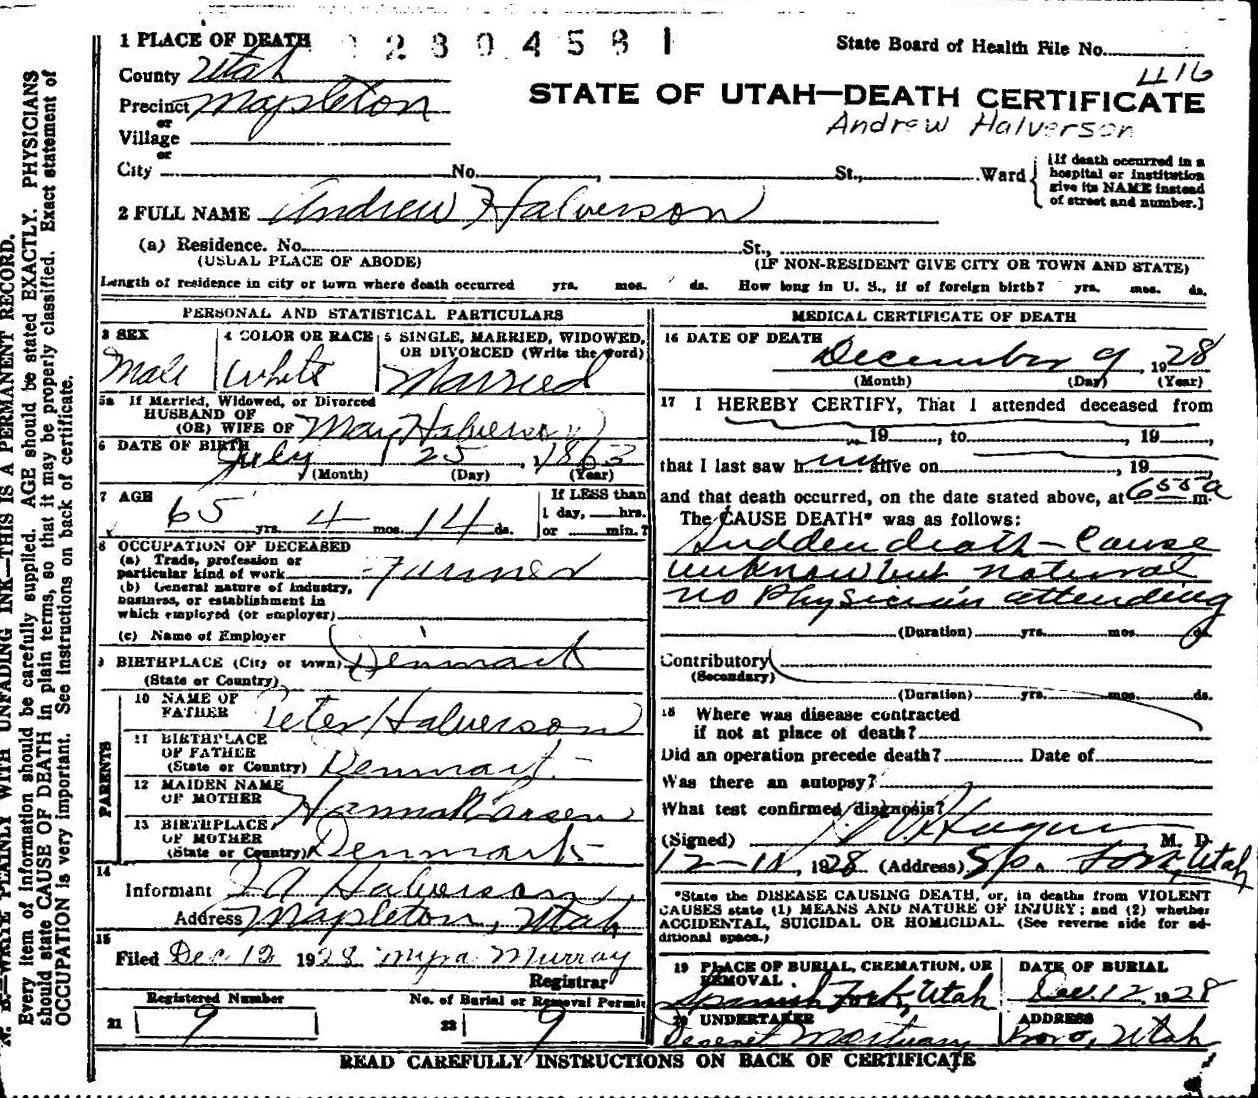 N. B.—WRITE PLAINLY WITH UNFADING INK—THIS IS A PERMANENT RECORD.
Every item of information should be carefully supplied. AGE should be stated EXACTLY. PHYSICIANS
should state CAUSE OF DEATH in plain terms, so that it may be properly classified. Exact statement of
OCCUPATION is very important. See instructions on back of certificate.
1 PLACE OF DEATH
2804581
State Board of Health File No.
416
County Utah
Precinct Mapleton
or
Village
or
City No. , St., Ward
[If death occurred in a
hospital or institution
give its NAME instead
of street and number.]
STATE OF UTAH—DEATH CERTIFICATE
Andrew Halverson
2 FULL NAME Andrew Halverson
(a) Residence. No. St.,
(USUAL PLACE OF ABODE) (IF NON-RESIDENT GIVE CITY OR TOWN AND STATE)
Length of residence in city or town where death occurred yrs. mos. ds. How long in U. S., if of foreign birth? yrs. mos. ds.
PERSONAL AND STATISTICAL PARTICULARS
3 SEX
Male
4 COLOR OR RACE
White
5 SINGLE, MARRIED, WIDOWED,
OR DIVORCED (Write the word)
Married
5a If Married, Widowed, or Divorced
HUSBAND OF
(OR) WIFE OF May Halverson
6 DATE OF BIRTH
July 25, 1863
(Month) (Day) (Year)
7 AGE
65 yrs. 4 mos. 14 ds.
If LESS than
1 day, hrs.
or min.?
8 OCCUPATION OF DECEASED
(a) Trade, profession or
particular kind of work Farmer
(b) General nature of industry,
business, or establishment in
which employed (or employer)
(c) Name of Employer
9 BIRTHPLACE (City or town) Denmark
(State or Country)
PARENTS
10 NAME OF
FATHER Peter Halverson
11 BIRTHPLACE
OF FATHER
(State or Country) Denmark
12 MAIDEN NAME
OF MOTHER Hannah Larsen
13 BIRTHPLACE
OF MOTHER
(State or Country) Denmark
14
Informant Halverson
Address Mapleton, Utah
15
Filed Dec 12 1928 Myra Murray
Registrar
Registered Number
21 9
No. of Burial or Removal Permit
22 9
MEDICAL CERTIFICATE OF DEATH
16 DATE OF DEATH
December 9, 1928
(Month) (Day) (Year)
17 I HEREBY CERTIFY, That I attended deceased from
, 19 , to , 19 ,
that I last saw h alive on , 19
and that death occurred, on the date stated above, at 6 55 a m.
The CAUSE DEATH* was as follows:
Sudden death — Cause
unknow but natural
no Physician attending
(Duration) yrs. mos. ds.
Contributory
(Secondary)
(Duration) yrs. mos. ds.
18 Where was disease contracted
if not at place of death?
Did an operation precede death? Date of
Was there an autopsy?
What test confirmed diagnosis?
(Signed) M. D.
12-11, 1928 (Address) Sp. Fork, Utah
*State the DISEASE CAUSING DEATH, or, in deaths from VIOLENT
CAUSES state (1) MEANS AND NATURE OF INJURY; and (2) whether
ACCIDENTAL, SUICIDAL OR HOMICIDAL. (See reverse side for ad-
ditional space.)
19 PLACE OF BURIAL, CREMATION, OR
REMOVAL.
Spanish Fork, Utah
DATE OF BURIAL
Dec. 12 1928
20 UNDERTAKER
Deseret Mortuary
ADDRESS
Provo, Utah
READ CAREFULLY INSTRUCTIONS ON BACK OF CERTIFICATE